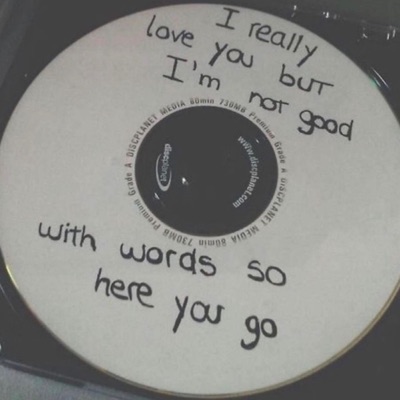 I really
love you but
I'm not good
with words so
here you go
DISCPLANET MEDIA 80min 730MB Premium Grade A DISCPLANET MEDIA 80min 730MB Premium Grade A
www.discplanet.com
discplanet